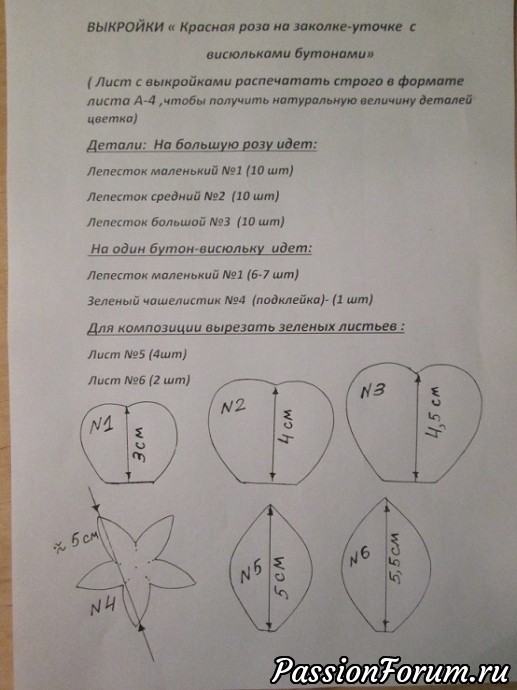 ВЫКРОЙКИ « Красная роза на заколке-уточке с
висюльками бутонами»
( Лист с выкройками распечатать строго в формате
листа А-4 ,чтобы получить натуральную величину деталей
цветка)
Детали: На большую розу идет:
Лепесток маленький №1 (10 шт)
Лепесток средний №2 (10 шт)
Лепесток большой №3 (10 шт)
На один бутон-висюльку идет:
Лепесток маленький №1 (6-7 шт)
Зеленый чашелистик №4 (подклейка)- (1 шт)
Для композиции вырезать зеленых листьев :
Лист №5 (4шт)
Лист №6 (2 шт)
№1 3 см
№2 4 см
№3 4,5 см
≈ 5 см №4
№5 5 см
№6 5,5см
PassionForum.ru